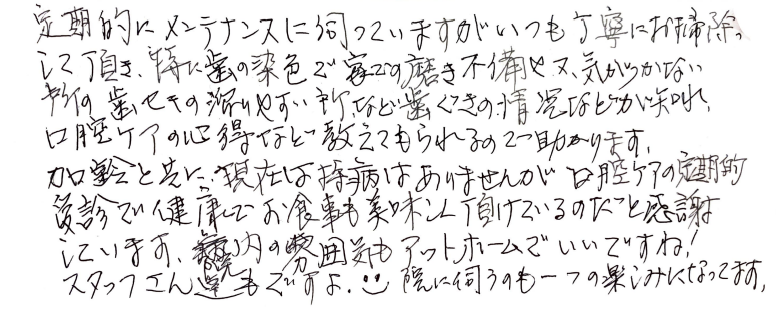 定期的にメンテナンスに伺っていますがいつも丁寧にお掃除
して頂き、特に歯の染色で家での磨き不備や又、気がつかない
所の歯セキの溜りやすい所、など歯ぐきの情況などが知れ、
口腔ケアの心得など教えてもらえれるので助かります。
加齢と共に、現在は持病はありませんが口腔ケアの定期的
受診で健康でお食事も美味しく頂けているのだと感謝
しています、院内の雰囲気もアットホームでいいですね!
スタッフさん達もですよ。院に伺うのも一つの楽しみになってます。